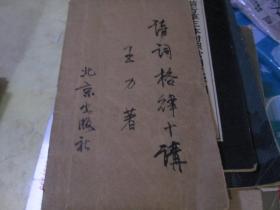 诗词格律十講
王力著
北京出版社